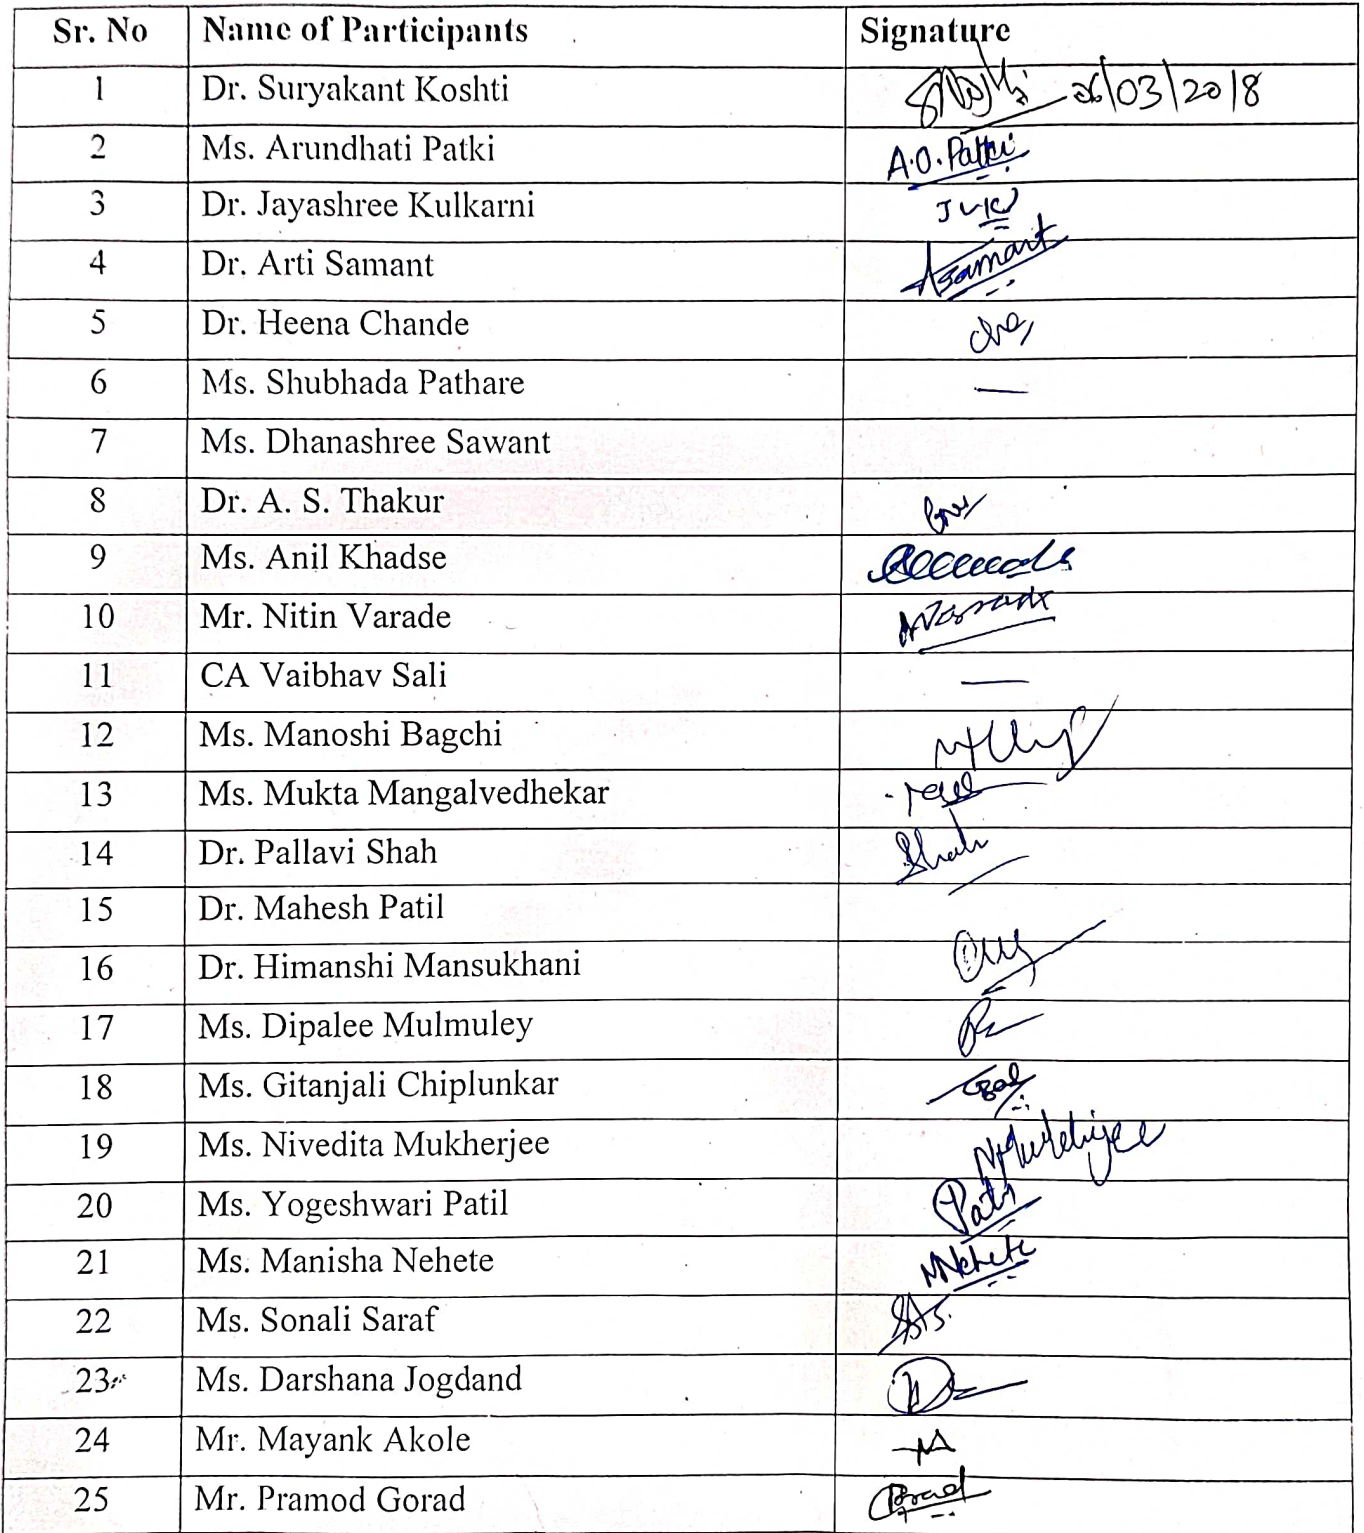 Sr. No Name of Participants Signature
1 Dr. Suryakant Koshti 26/03/2018
2 Ms. Arundhati Patki A.O.Patki
3 Dr. Jayashree Kulkarni
4 Dr. Arti Samant Asamant
5 Dr. Heena Chande
6 Ms. Shubhada Pathare —
7 Ms. Dhanashree Sawant
8 Dr. A. S. Thakur
9 Ms. Anil Khadse
10 Mr. Nitin Varade
11 CA Vaibhav Sali —
12 Ms. Manoshi Bagchi
13 Ms. Mukta Mangalvedhekar
14 Dr. Pallavi Shah Shah
15 Dr. Mahesh Patil
16 Dr. Himanshi Mansukhani
17 Ms. Dipalee Mulmuley
18 Ms. Gitanjali Chiplunkar
19 Ms. Nivedita Mukherjee NMukherjee
20 Ms. Yogeshwari Patil
21 Ms. Manisha Nehete MNehete
22 Ms. Sonali Saraf
23 Ms. Darshana Jogdand
24 Mr. Mayank Akole
25 Mr. Pramod Gorad